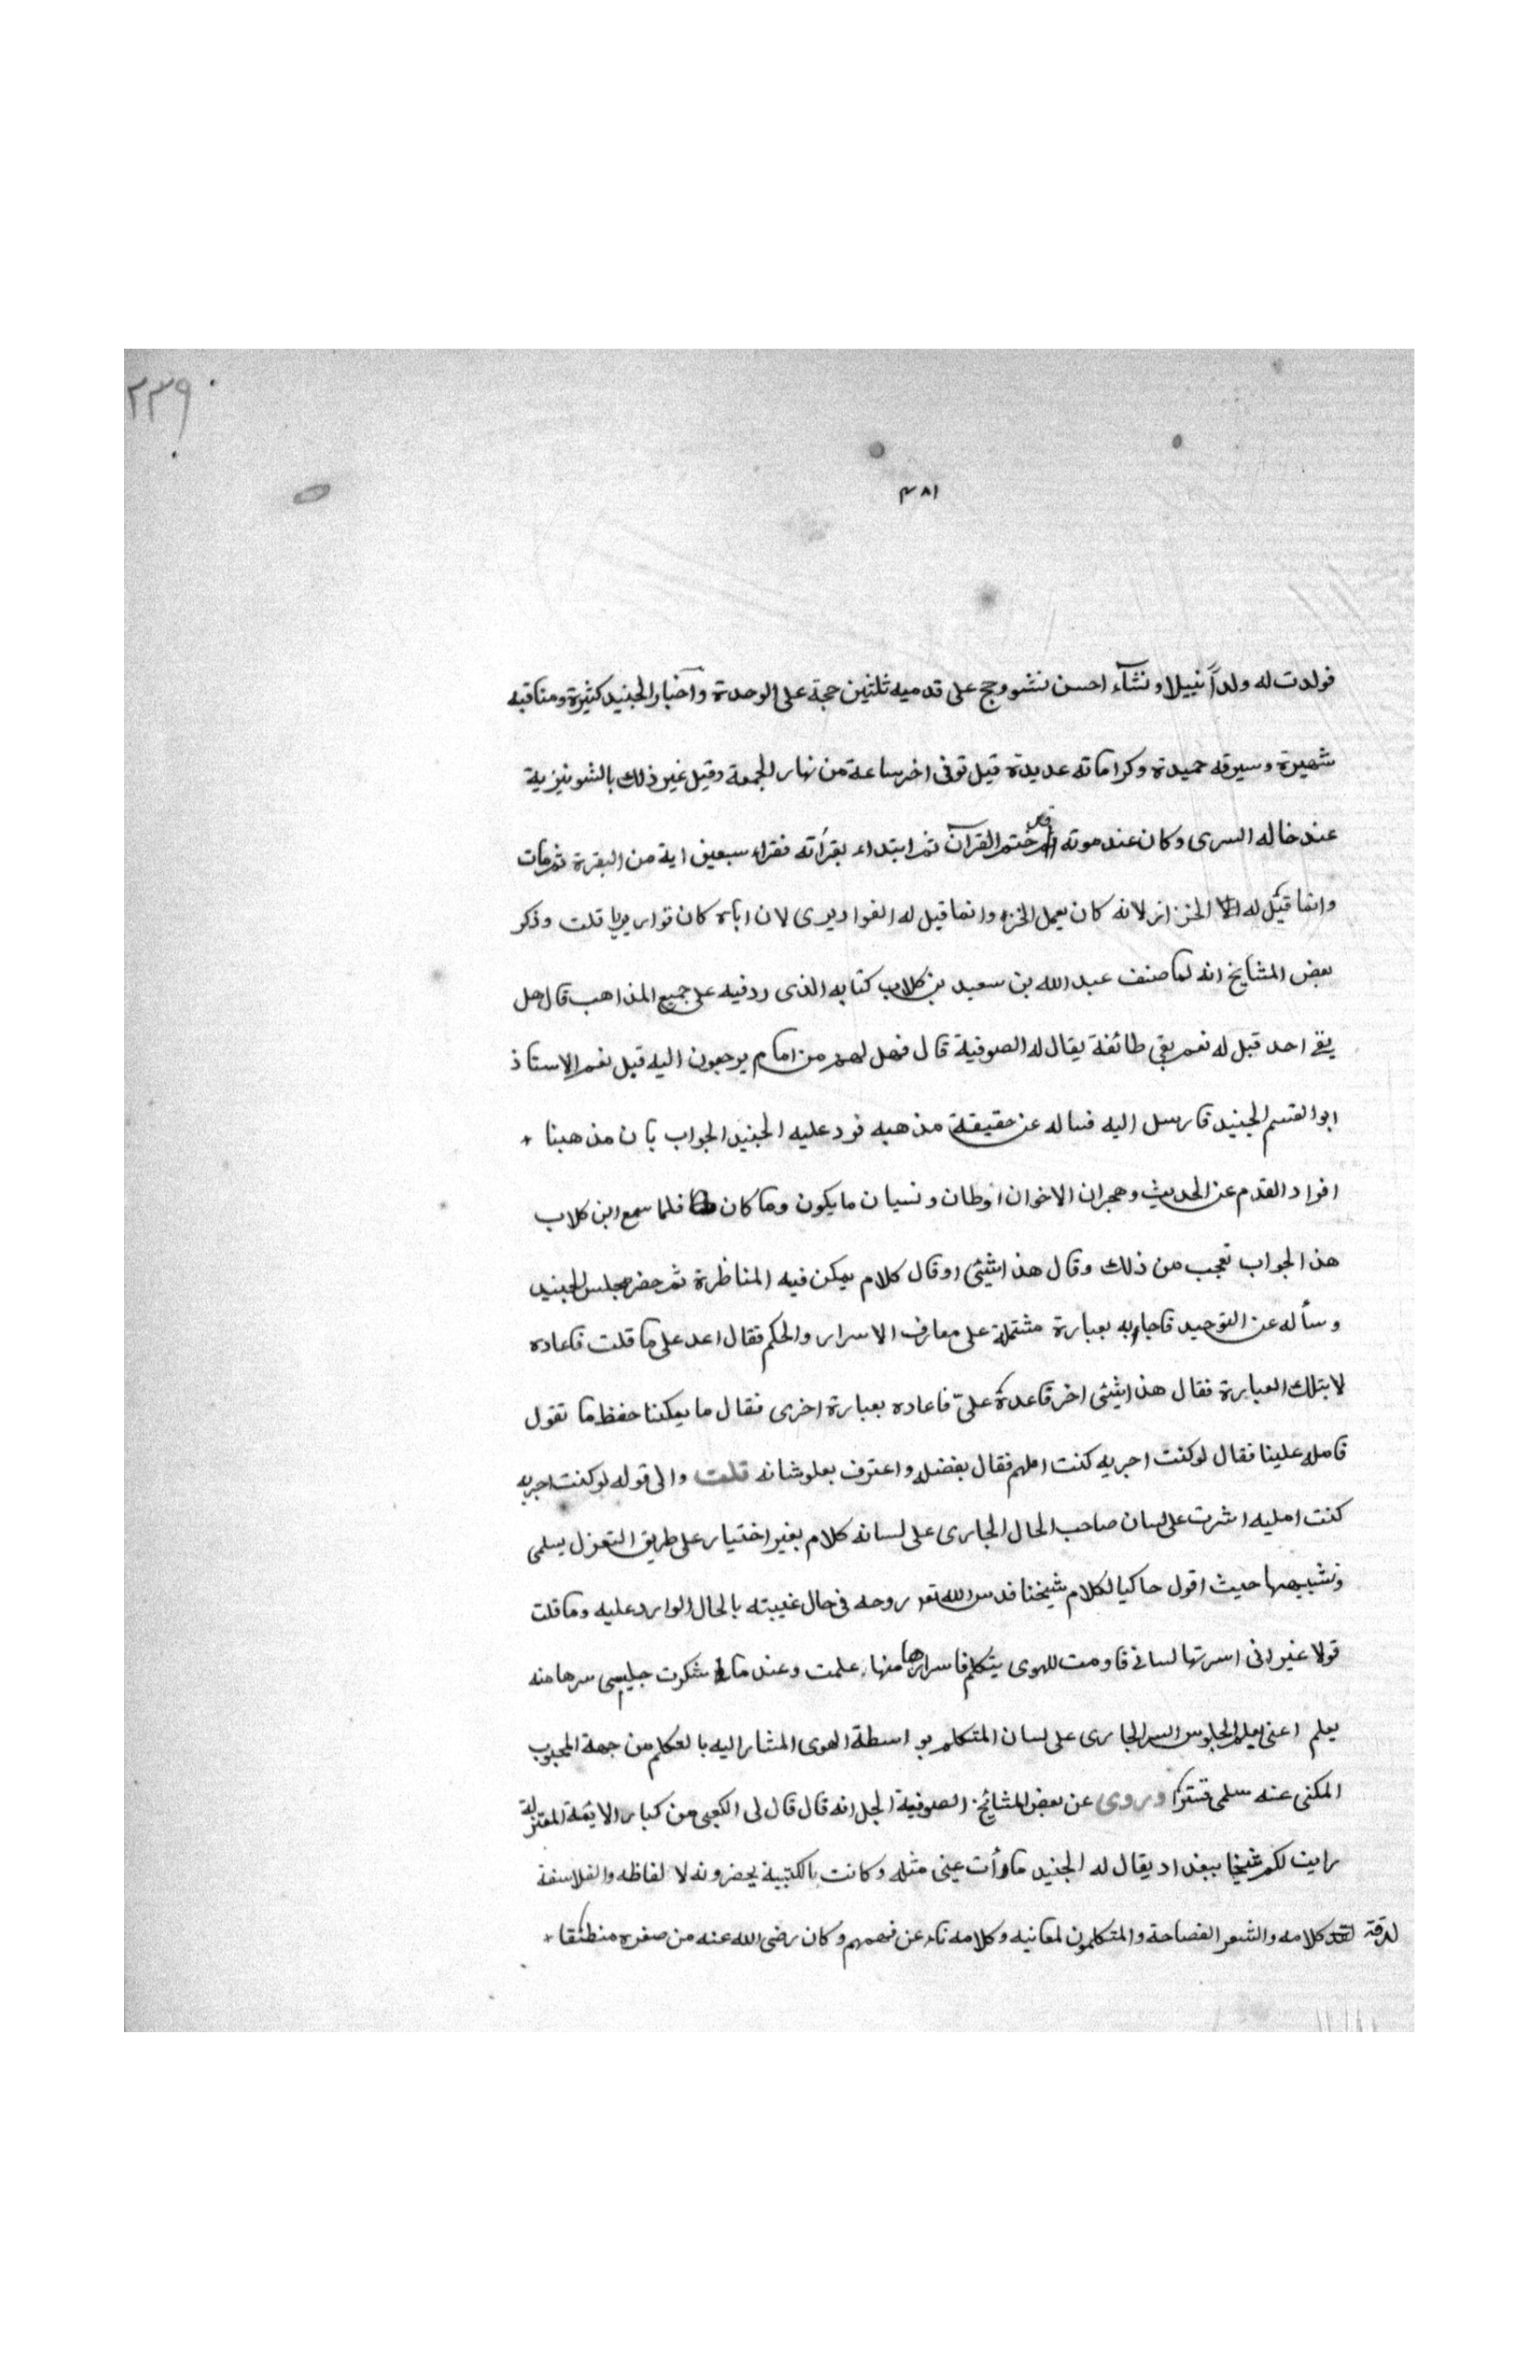 ٢٣٩
٤٨١
فولدت له ولداً نبيلا ونشآء احسن نشو وحج على قدميه ثلثين حجة على الوحدة واخبار الجنيد كثيرة ومناقبه
شهيرة وسيرته حميدة وكراماته عديدة قيل توفى اخر ساعة من نهار الجمعة وقيل غير ذلك بالشونيزية
عند خاله السرى وكان عند موته قد ختم القرآن ثم ابتداء بقرأته فقراء سبعين اية من البقرة ثم مات
وانما قيل له الخزاز لانه كان يعمل الخز وانما قيل له القواريرى لان اباه كان قواريريا قلت وذكر
بعض المشايخ انه لما صنف عبد الله بن سعيد بن كلاب كتابه الذى رد فيه على جميع المذاهب قال هل
بقى احد قيل له نعم بقى طائفة يقال له الصوفية قال فهل لهم من امام يرجعون اليه قيل نعم الاستاذ
ابو القسم الجنيد فارسل اليه فساله عن حقيقة مذهبه فرد عليه الجنيد الجواب بان مذهبنا
افراد القدم عن الحديث وهجران الاخوان اوطان ونسيان ما يكون وما كان فلما سمع ابن كلاب
هذ الجواب تعجب من ذلك وقال هذا شيئى او قال كلام يمكن فيه المناظرة ثم حضر مجلس الجنيد
وسأله عن التوحيد فاجابه بعبارة مشتملة على معارف الاسرار والحكم فقال اعد على ما قلت فاعاده
لا بتلك العبارة فقال هذا شيئى اخر فاعدة علىّ فاعاده بعبارة اخرى فقال ما يمكننا حفظ ما تقول
فامله علينا فقال لو كنت اجريه كنت املهم فقال بفضله واعترف بعلو شانه قلت والى قوله لو كنت اجريه
كنت امليه اشرت على لسان صاحب الحال الجارى على لسانه كلام بغير اختيار على طريق التغزل بسلمى
وتشبيبها حيث اقول حاكيا لكلام شيخنا قدس الله تعر روحه فى حال غيبته بالحال الوارد عليه وما قلت
قولا غير انى اسرتها لسانى قاومت للهوى يتكلم فاسرارها منها علمت وعند ما شكرت جليسى سرها منه
يعلم اعنى يعلم الجلوس السر الجارى على لسان المتكلم بواسطة الهوى المشار اليه بالتكلم من جهة المحبوب
المكنى عنه سلمى تسترا وروى عن بعض المشائخ الصوفية الجل انه قال قال لى الكعبى من كبار الايمة المعتزلة
رايت لكم شيخا ببغداد يقال له الجنيد ما رأت عينى مثله وكانت بالكتبية يحضرونه لا لفاظه والفلاسفة
لدقة كلامه والشعر الفصاحة والمتكلمون لمعانيه وكلامه ناء عن فهمهم وكان رضى الله عنه من صغره منطئقا